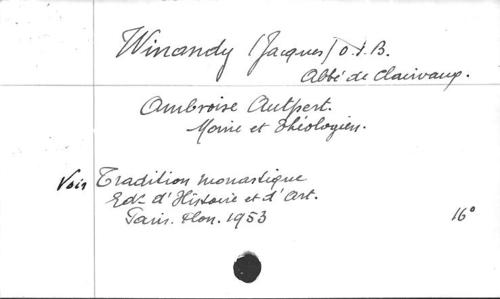 Winandy (Jacques) O.S.B.
Abbé de Clairvaux.
Ambroise Autpert.
Moine et Théologien.
Voir Tradition monastique
Edn d'Histoire et d'Art.
Paris. Plon. 1953 16°